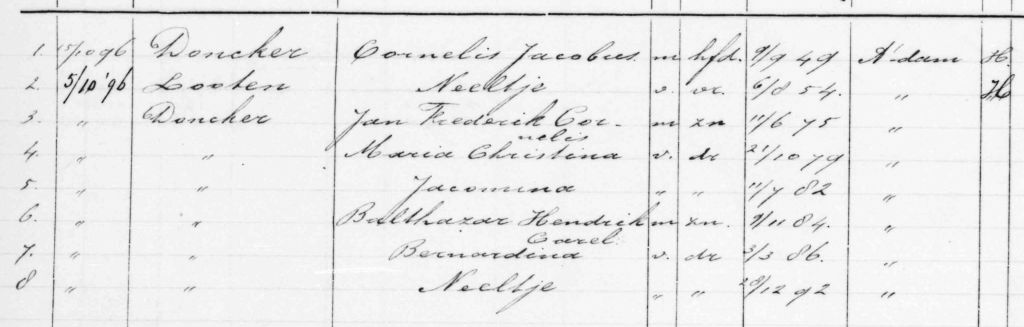 1. 15/10 96 Doncker Cornelis Jacobus m hfd. 9/9 49 A'dam H.
2. 5/10 '96 Looten Neeltje v. vr. 6/8 54. „ H
3. „ Doncker Jan Frederik Cor-
nelis m zn 11/6 75 „
4. „ „ Maria Christina v. dr 21/10 79 „
5. „ „ Jacomina „ „ 11/7 82 „
6. „ „ Balthazar Hendrik m zn. 9/11 84. „
Carel.
7. „ „ Bernardina v. dr 3/3 86. „
8 „ „ Neeltje „ „ 28/12 92 „